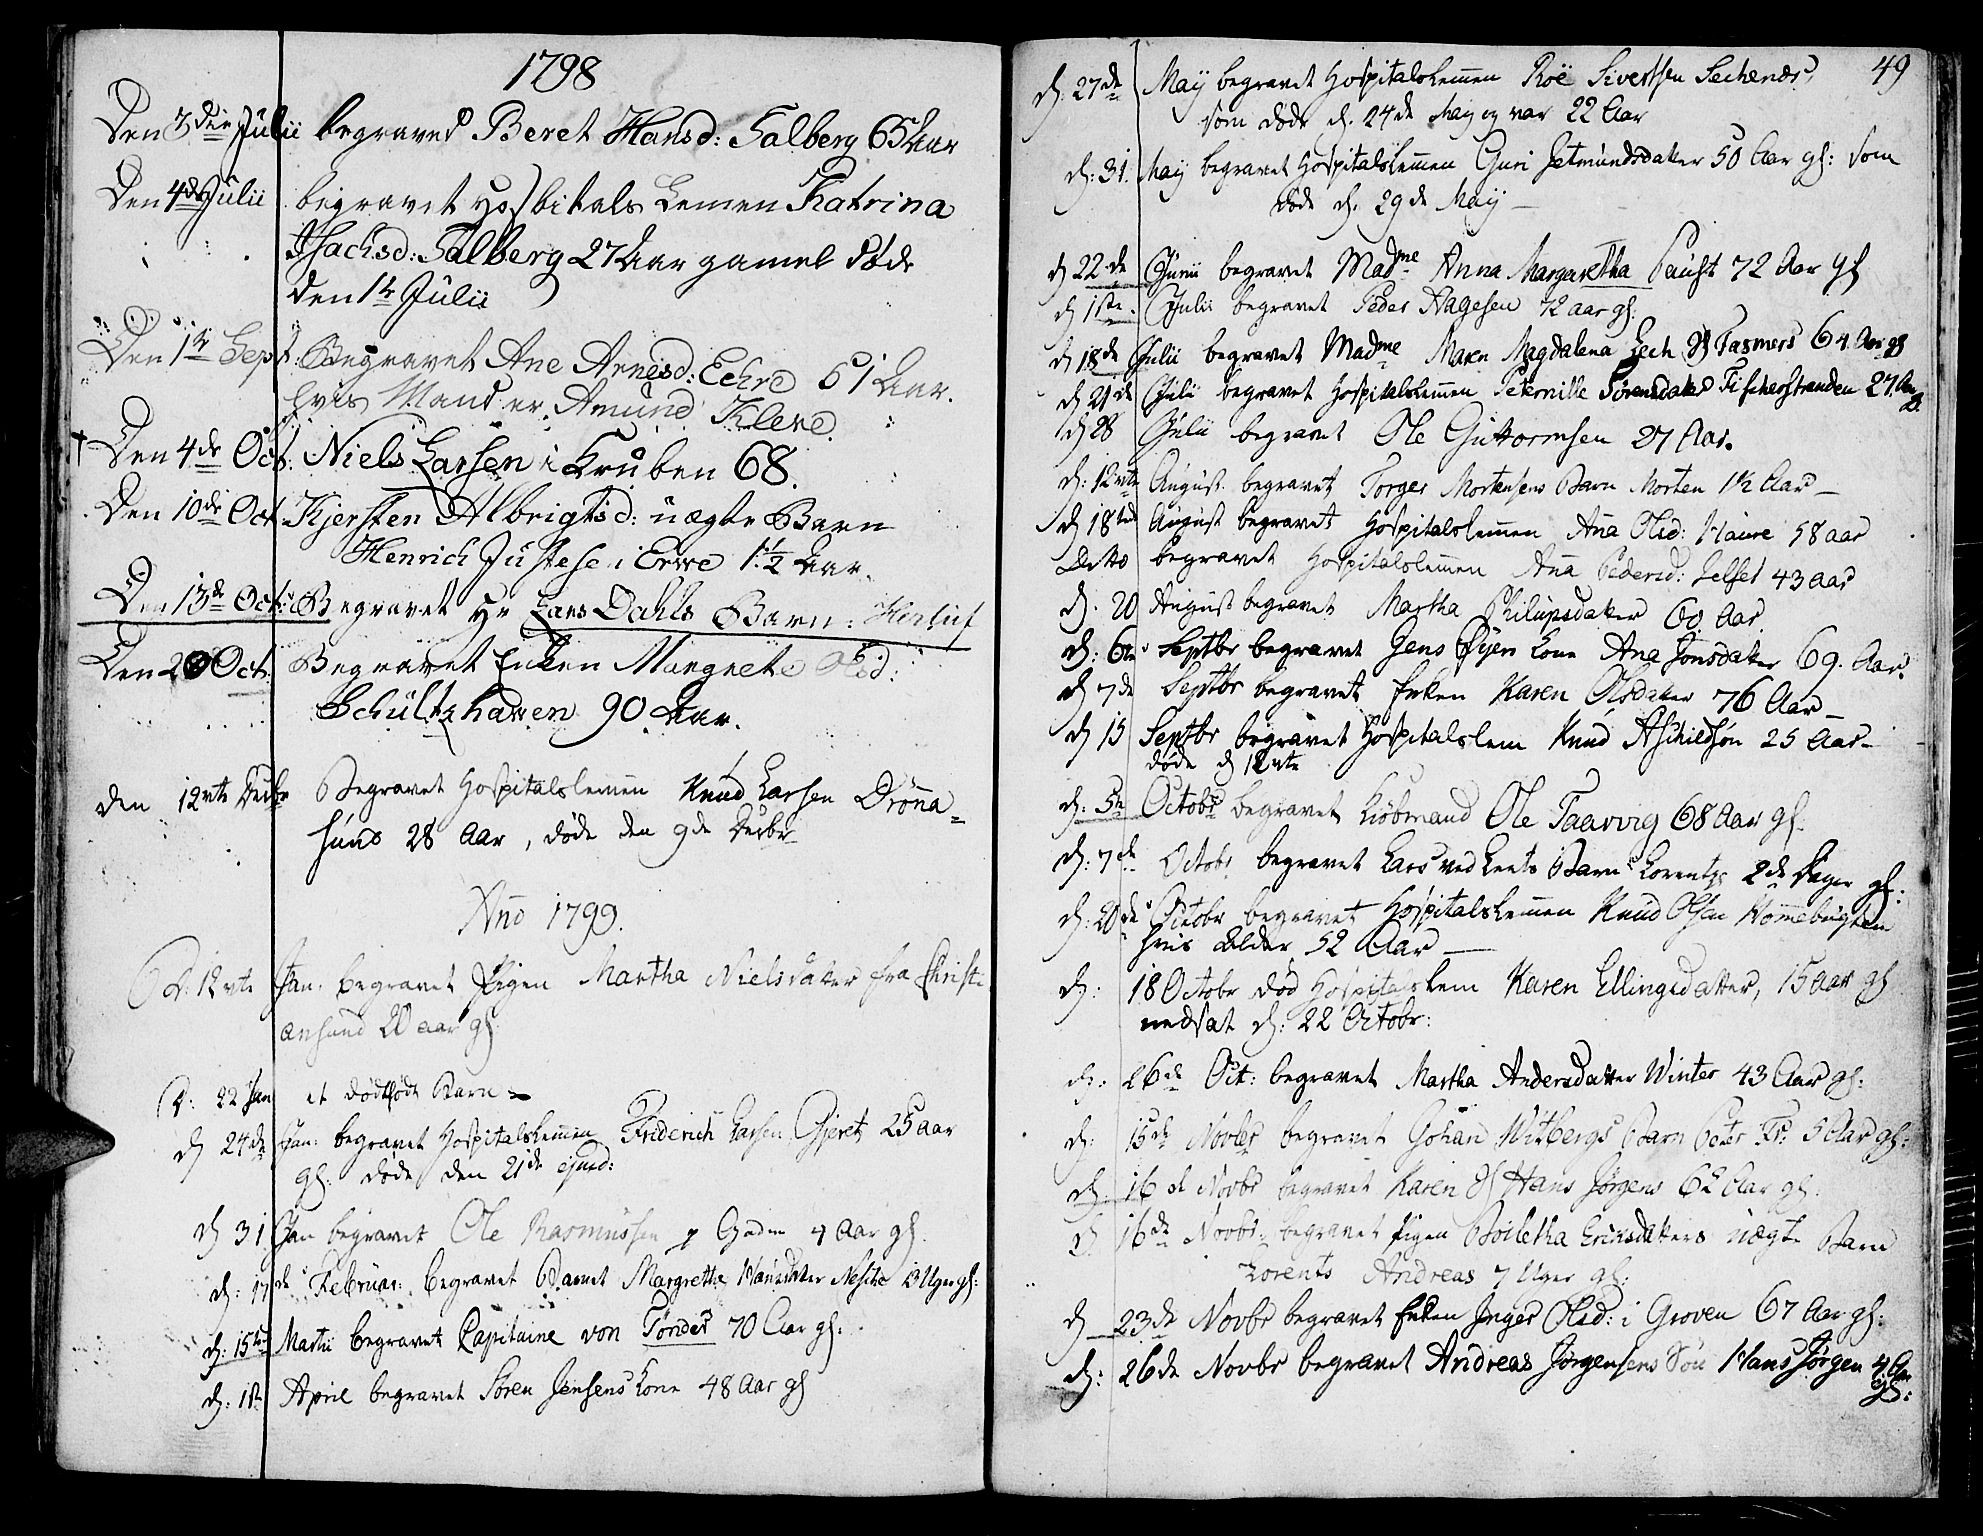 1798
Den 3die Julii begraved Beret Hansd: Talberg 65 Aar
Den 4de Julii begravet Hosbitals Lemen Katrina
Isachsd: Talberg 27 Aar gamel døde
den 1te Julii
Den 1te Sept: Begravet Ane Arnesd: Echre 61 Aar.
hvis Mand er Amund Kleve
Den 4de Oct: Niels Larsen i Kruben 68.
Den 10de Oct. Kjersten Albrigtsd: uægte Barn
Henrich Justese i Erwe 1 1/2 Aar.
Den 13de Oct: Begravet Hr Lars Dahls Barn: Herluf
Den 20 Oct. Begravet Enken Margrete Olsd:
Schultzhaven 90 Aar.
den 12vte Decbr Begravet Hospitalslemen Knud Larsen Drönna=
sund 28 Aar, døde den 9de Decbr
Ano 1799.
D: 12vte Jan: begravet Pigen Martha Nielsdater fra Christi
ansund 20 aar gl
D: 22 Jan et dødfødt Barn
D 24de Jan: begravet Hospitalslemen Friderich Larsen Gjeretz 25 aar
gl: døde den 21de ejusd:
D 31 Jan begravet Ole Rasmussen p Gaden 4 Aar gl.
D: 17de Februar: begravet Barnet Margrethe Hansdater Nesche 13 Uger gl:
D: 15te Martii begravet Capitaine von Tönder 70 Aar gl:
D: 1ste April begravet Sören Jensens Kone 48 Aar gl
49
D: 27de May begravet Hospitalslemen Roë Sivertsen Sechenes
som døde d. 24de May og var 22 Aar
D: 31. May begravet Hospitalslemen Guri Jetmundsdater 50 Aar gl: som
døde d. 29de May
D 22de Junii begravet Madme Anna Margaretha Paust 72 Aar gl
D 11te Julii begravet Peder Aagesen 72 aar gl:
D 18de Julii begravet Madme Maren Magdalena Lech Sl Tasmers 64 Aar gl
D 21de Julii begravet Hospitalslemen Peternille Sørensdater Fischerstranden 27 Aar
gl.
D 28 Julii begravet Ole Guttormsen 27 Aar.
D: 12vte August begravet Torger Mortensens Barn Morten 1 1/2 Aar
D 18ted August begravet Hospitalslemen Ana Olsd: Haure 58 aar
Ditto begravet Hospitalslemen Ana Pedersd: Jelset 43 aar
D: 20 August begravet Martha Philupsdater 60 Aar
D: 6te Septbr begravet Jens Øyen Kone Ane Jonsdater 69. Aar.
D 7de Septbr begravet Enken Karen Olsdater 76 Aar
D 15 Septbr begravet Hospitalslem Knud Aschildsön 25 Aar
døde d 12vte
D: 5te Octobr begravet Kiöbmand Ole Taarvig 68 Aar gl.
D: 7de Octobr begravet Lars ved Leets Barn Lorentz 2de Dager gl:
D: 20de Octobr begravet Hospitalslemen Knud Olsen Hommebugten
hvis Alder 52 Aar
D: 18 Octobr død Hospitalslem Karen Ellingsdatter, 15 aar gl
nedsat D: 22 Octobr:
D: 26de Oct: begravet Martha Andersdatter Winter 43 Aar gl:
D: 15de Novbr begravet Johan Witbergs Barn Peter Fr: 5 Aar gl:
D: 16de Novbr begravet Karen Sl Hans Jörgens 62 Aar gl.
D 16de Novbr: begravet Pigen Boiletha Ericksdatters uægte Barn
Lorents Andreas 7 Uger gl:
D 23de Novbr begravet Enken Inger Olsd: i Groven 67 Aar gl:
D: 26de Novbr begravet Andreas Jörgensens Sön Hans Jörgen 4 Aar
gl: